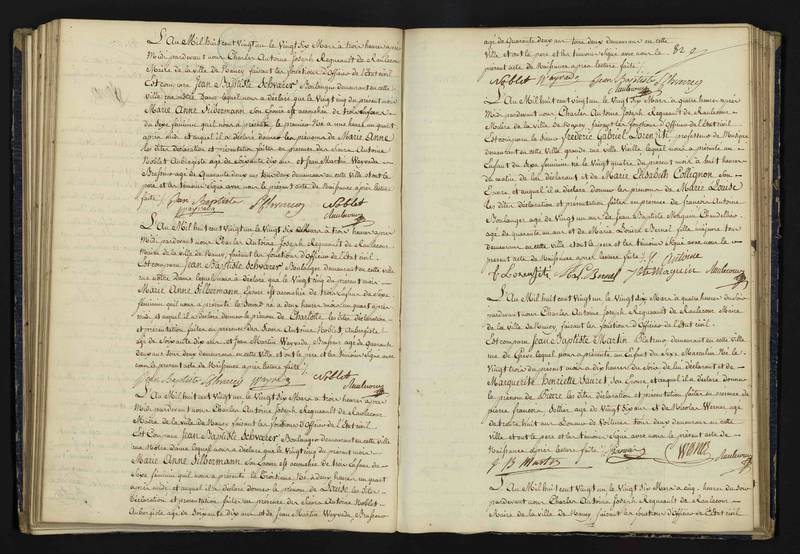 L'An Mil huit cent Vingt un le Vingt Six Mars à trois heures après
Midi pardevant nous Charles Antoine Joseph Regnault de Raulecour
Maire de la ville de Nancy faisant les fonctions d'Officier de l'état civil
Est comparu Jean Baptiste Schvarer Boulanger demeurant en cette
Ville rue Notre Dame lequel nous a déclaré que le Vingt cinq du présent mois
Marie Anne Silbermann son Epouse est accouchée de trois Enfans
du Sexe féminin qu'il nous a présenté, le premier Née a une heure un quart
après midi et auquel il a déclaré donner les prénoms de Marie Anne
les dites déclaration et présentation faites en présence des Sieurs Antoine
Noblet Aubergiste agé de Soixante dix ans et Jean Martin Wayrada
Brasseur agé de Quarante deux ans tous deux demeurans en cette ville et ont le
père et les témoins Signé avec nous le présent acte de Naissance après lecture
faite /. Jean Baptiste Noblet
Wayrada
L'An Mil huit cent Vingt un le Vingt Six Mars à trois heures après
Midi pardevant nous Charles Antoine Joseph Regnault de Raulecour
Maire de la ville de Nancy, faisant les fonctions d'Officier de l'état civil.
Est comparu Jean Baptiste Schvarer Boulanger demeurant en cette ville
rue Notre Dame lequel nous a déclaré que le Vingt cinq du présent mois
Marie Anne Silbermann Epouse est accouchée de trois Enfans du Sexe
féminin qu'il nous a présenté le Second né a deux heures moins un quart après
midi et auquel il a déclaré donner le prénom de Charlotte les dites déclaration
et présentation faites en présence des Sieurs Antoine Noblet Aubergiste
agé de Soixante dix ans et Jean Martin Wayrada Brasseur agé de Quarante
deux ans tous deux demeurans en cette Ville et ont le père et les témoins Signé avec
nous le présent acte de Naissance après lecture faite /.
Jean Baptiste Wayrada Noblet
L'An Mil huit cent Vingt un le Vingt Six Mars à trois heures après
Midi pardevant nous Charles Antoine Joseph Regnault de Raulecour
Maire de la ville de Nancy, faisant les fonctions d'Officier de l'état civil
Est Comparu Jean Baptiste Schvarer Boulanger demeurant en cette ville
rue Notre Dame lequel nous a déclaré que le Vingt cinq du présent mois
Marie Anne Silbermann Son Epouse est accouchée de trois Enfans de
Sexe féminin qu'il nous a présenté la Troisième Née à deux heures un quart
après midi et auquel il a déclaré donner le prénom de Louise les dites
déclaration et présentation faites en présence des Sieurs Antoine Noblet
Aubergiste agé de Soixante dix ans et de Jean Martin Wayrada Brasseur
agé de Quarante deux ans tous deux demeurans en cette
Ville et ont le père et les témoins Signé avec nous le 82
présent acte de Naissance après lecture faite /.
Noblet Wayrada Jean Baptiste
L'An Mil huit cent Vingt un le Vingt Six Mars à quatre heures après
Midi pardevant nous Charles Antoine Joseph Regnault de Raulecour
Maire de la ville de Nancy faisant les fonctions d'Officier de l'état civil.
Est comparu le Sieur Frédéric Gabriel Lorenziti professeur de Musique
demeurant en cette Ville grande rue Ville Vieille lequel nous a présenté un
Enfant du Sexe féminin né le Vingt quatre du présent mois à huit heures
du matin de lui déclarant et de Marie Elisabeth Collignon Son
Epouse et auquel il a déclaré donner les prénoms de Marie Louise
les dites Déclaration et présentation faites en présence de francois Antoine
Boulanger agé de Vingt un ans de Jean Baptiste Magnien Chandellier
agé de quarante un ans et de Marie Louise Bernel fille majeure tous
demeurans en cette ville et ont le père et les témoins Signé avec nous le
présent acte de Naissance après lecture faite /. f. Antoine
Lorenziti Bernel Magnien
L'An Mil huit cent Vingt un le Vingt Six Mars à quatre heures du Soir
pardevant nous Charles Antoine Joseph Regnault de Raulecour Maire
de la ville de Nancy faisant les fonctions d'Officier de l'état civil.
Est comparu Jean Baptiste Martin demeurant en cette Ville
rue de Grève lequel nous a présenté un Enfant du Sexe Masculin Né le
Vingt trois du présent mois à dix heures du Soir de lui déclarant et de
Marguerite Henriette Son Epouse et auquel il a déclaré donner
le prénom de Pierre les dites déclaration et présentation faites en présence de
Pierre francois Sellier agé de Vingt Six ans et de Nicolas Werner agé
de trente huit ans Loueur de Voitures tous deux demeurans en cette
ville et ont le père et les témoins Signé avec nous le présent acte de
Naissance après lecture faite /.
J B Martin
L'An Mil huit cent Vingt un le Vingt Six Mars à cinq heures du Soir
pardevant nous Charles Antoine Joseph Regnault de Raulecour
Maire de la ville de Nancy faisant les fonctions d'Officier de l'état civil